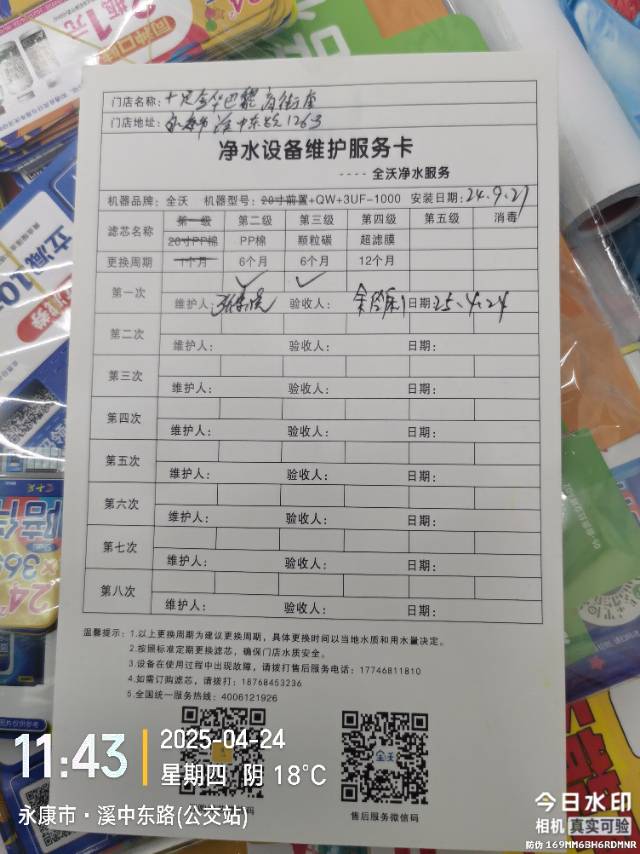 门店名称：十足全年巴黎商街店
门店地址：溪中东路126号
净水设备维护服务卡
----全沃净水服务
机器品牌：全沃 机器型号：20寸前置+QW+3UF-1000 安装日期：24.9.27
滤芯名称 第一级 第二级 第三级 第四级 第五级 消毒
20寸PP棉 PP棉 颗粒碳 超滤膜
更换周期 1个月 6个月 6个月 12个月
第一次 ✓ ✓
维护人： 验收人： 日期：25.4.24
第二次
维护人： 验收人： 日期：
第三次
维护人： 验收人： 日期：
第四次
维护人： 验收人： 日期：
第五次
维护人： 验收人： 日期：
第六次
维护人： 验收人： 日期：
第七次
维护人： 验收人： 日期：
第八次
维护人： 验收人： 日期：
温馨提示：1.以上更换周期为建议更换周期，具体更换时间以当地水质和用水量决定。
2.按照标准定期更换滤芯，确保门店水质安全。
3.设备在使用过程中出现故障，请拨打售后服务电话：17746811810
4.如需订购滤芯，请拨打：18768453236
5.全国统一服务热线：4006121926
全沃
售后服务微信码
11:43
2025-04-24
星期四 阴 18℃
永康市·溪中东路(公交站)
今日水印
相机 真实可验
防伪 169MM6BH6RDMNR
立减10